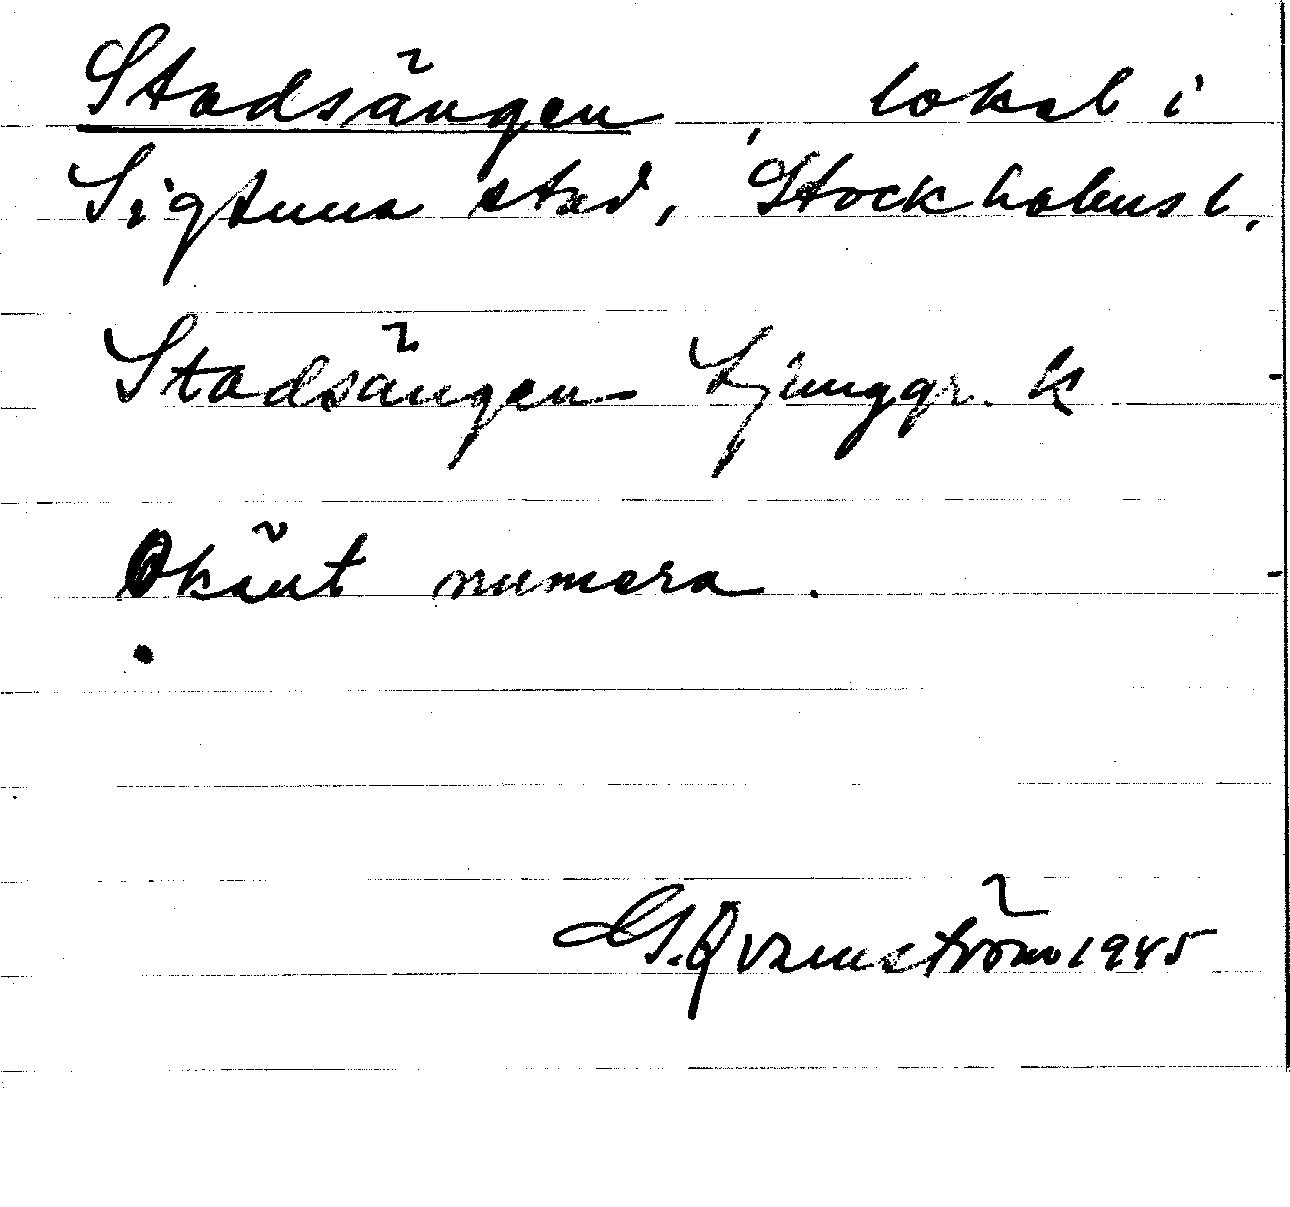 Stadsängen, lokal i
Sigtuna stad, Stockholms l.
Stadsängen Ljunggr. K
Okänt numera.
G. Qvarnström 1945